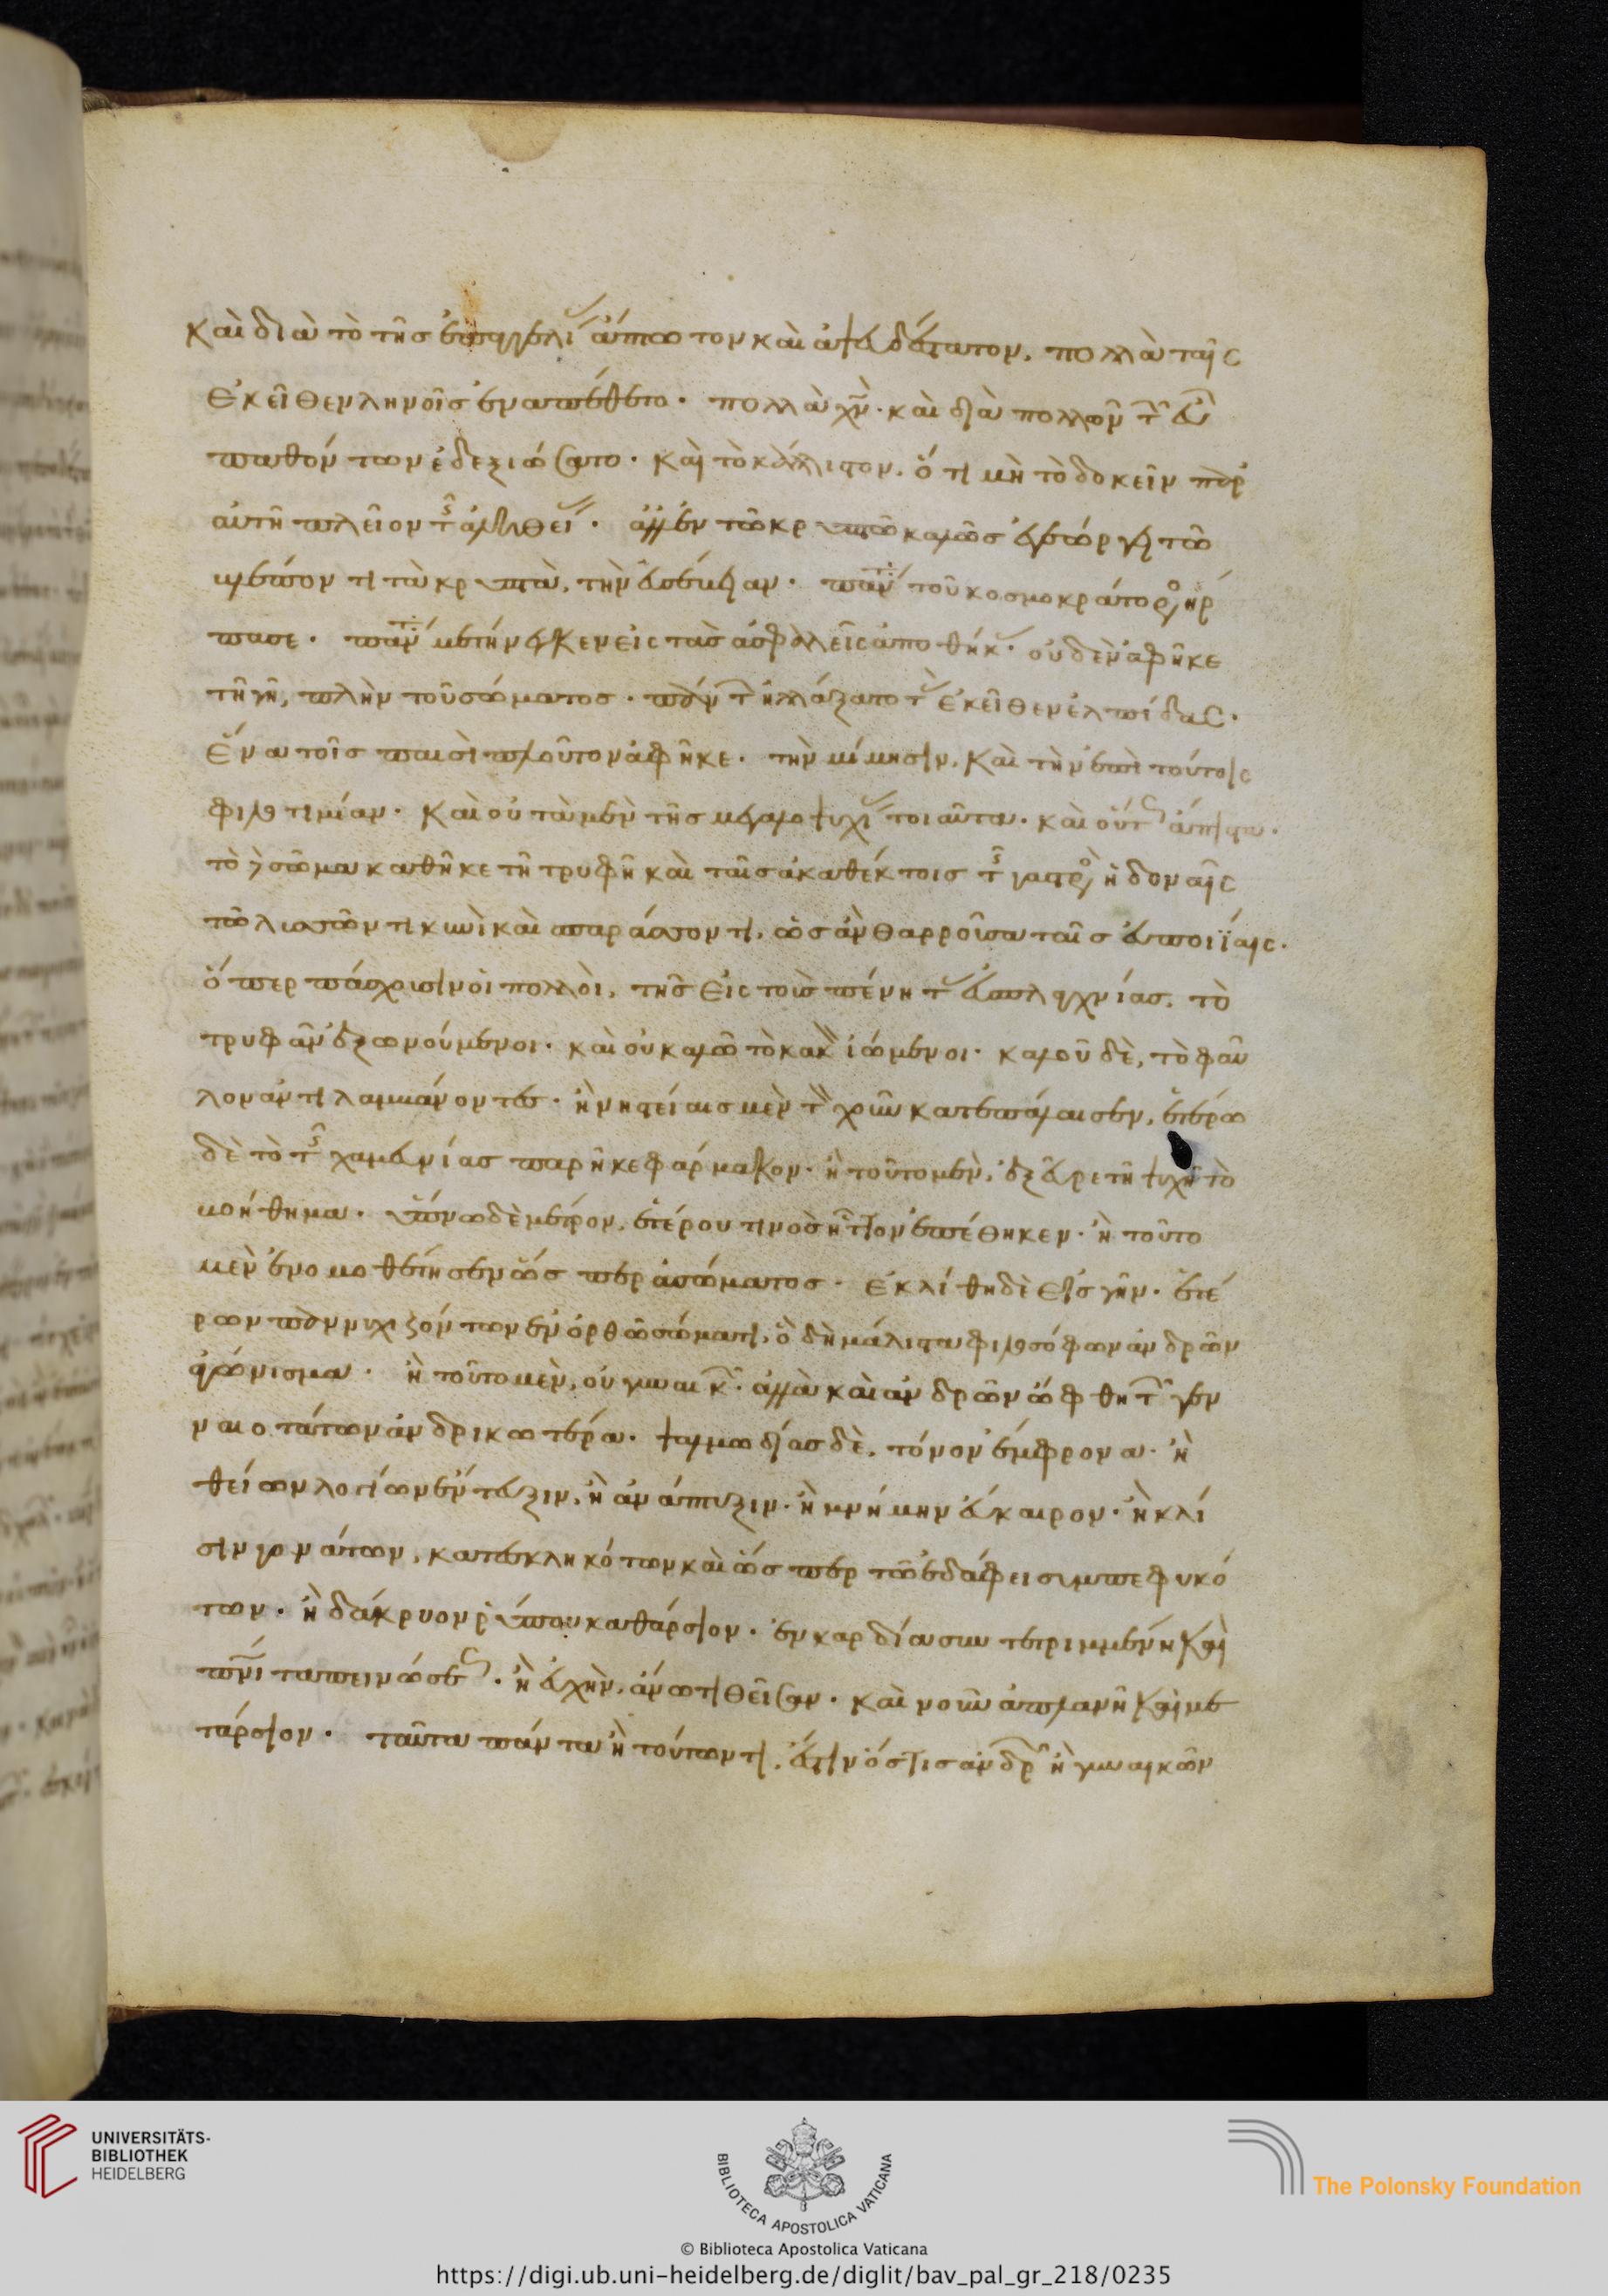 καὶ διὰ τὸ τῆς ἐπαγγελίας ἄπτωτον καὶ ἀψευδέστατον, πολλὰ ταῖς
ἐκεῖθεν ληνοῖς ἐναπέθετο. πολλὰ χν καὶ διὰ πολλῶν τῶν εὖ
παθόντων ἐδεξιώσατο. καὶ τὸ κάλλιστον, ὅτι μὴ τὸ δοκεῖν παρ'
αὐτῇ πλεῖον τῆς ἀληθείας. ἀλλ' ἐν τῷ κρυπτῷ καλῶς ἐγεώργει τῷ
βλέποντι τὰ κρυπτὰ, τὴν εὐσέβειαν. πάντα τοῦ κοσμοκράτορος ἥρ
πασε. πάντα μετήνεγκεν εἰς τὰς ἀσφαλεῖς ἀποθήκας. οὐδὲν ἀφῆκε
τῇ γῇ, πλὴν τοῦ σώματος. πάντων ἠλλάξατο τὰς ἐκεῖθεν ἐλπίδας.
ἕνα τοῖς παισὶ πλοῦτον ἀφῆκε. τὴν μίμησιν, καὶ τὴν ἐπὶ τούτοις
φιλοτιμίαν. καὶ οὐ τὰ μὲν τῆς μεγαλοψυχίας τοιαῦτα. καὶ οὕτως ἄπιστα.
τὸ δὲ σῶμα καθῆκε τῇ τρυφῇ καὶ ταῖς ἀκαθέκτοις τῆς γαστρὸς ἡδοναῖς
τῷ λυσσῶντι κυνὶ καὶ σπαράσσοντι, ὡς ἂν θαρροῦσα ταῖς εὐποιΐαις.
ὅπερ πάσχουσιν οἱ πολλοὶ, τῆς εἰς τοὺς πένητας εὐσπλαγχνίας, τὸ
τρυφᾶν ἐξωνούμενοι. καὶ οὐ καλῶ τὸ κακὸν ἰώμενοι. καλοῦ δὲ, τὸ φαῦ
λον ἀντιλαμβάνοντες. ἢ νηστείαις μὲν τὸν χοῦν κατεπάλαισεν, ἑτέρω
δὲ τὸ τῆς χαμευνίας παρῆκε φάρμακον. ἢ τοῦτο μὲν, ἐξεῦρε τῇ ψυχῇ τὸ
βοήθημα. ὕπνω δὲ μέτρον, ἑτέρου τινὸς ἧττον ἐπέθηκεν. ἢ τοῦτο
μὲν ἐνομοθέτησεν ὥσπερ ἀσώματος. ἐκλίθη δὲ εἰς γῆν. ἑτέ
ρων παννυχιζόντων ἐν ὀρθῶ σώματι, ὃ δὴ μάλιστα φιλοσόφων ἀνδρῶν
ἀγώνισμα. ἢ τοῦτο μὲν, οὐ γυναικῶν. ἀλλὰ καὶ ἀνδρῶν ὤφθη τῶν γεν
ναιοτάτων ἀνδρικωτέρα. ψαλμωδίας δὲ, τόνον ἔμφρονα. ἢ
θείων λογίων ἔντευξιν, ἢ ἀνάπτυξιν. ἢ μνήμην εὔκαιρον. ἢ κλί
σιν γονάτων, κατεσκληκότων καὶ ὥσπερ τῷ ἐδάφει συμπεφυκό
των. ἢ δάκρυον ῥύπου καθάρσιον. ἐν καρδία συντετριμμένη καὶ
πνι ταπεινώσεως. ἢ εὐχὴν, ἀνωτιθεῖσαν. καὶ νοῦν ἀπλανῆ καὶ με
τάρσιον. ταῦτα πάντα ἢ τούτων τι, ἔστιν ὅστις ἀνδρῶν ἢ γυναικῶν
UNIVERSITÄTS-
BIBLIOTHEK
HEIDELBERG
BIBLIOTECA APOSTOLICA VATICANA
The Polonsky Foundation
© Biblioteca Apostolica Vaticana
https://digi.ub.uni-heidelberg.de/diglit/bav_pal_gr_218/0235